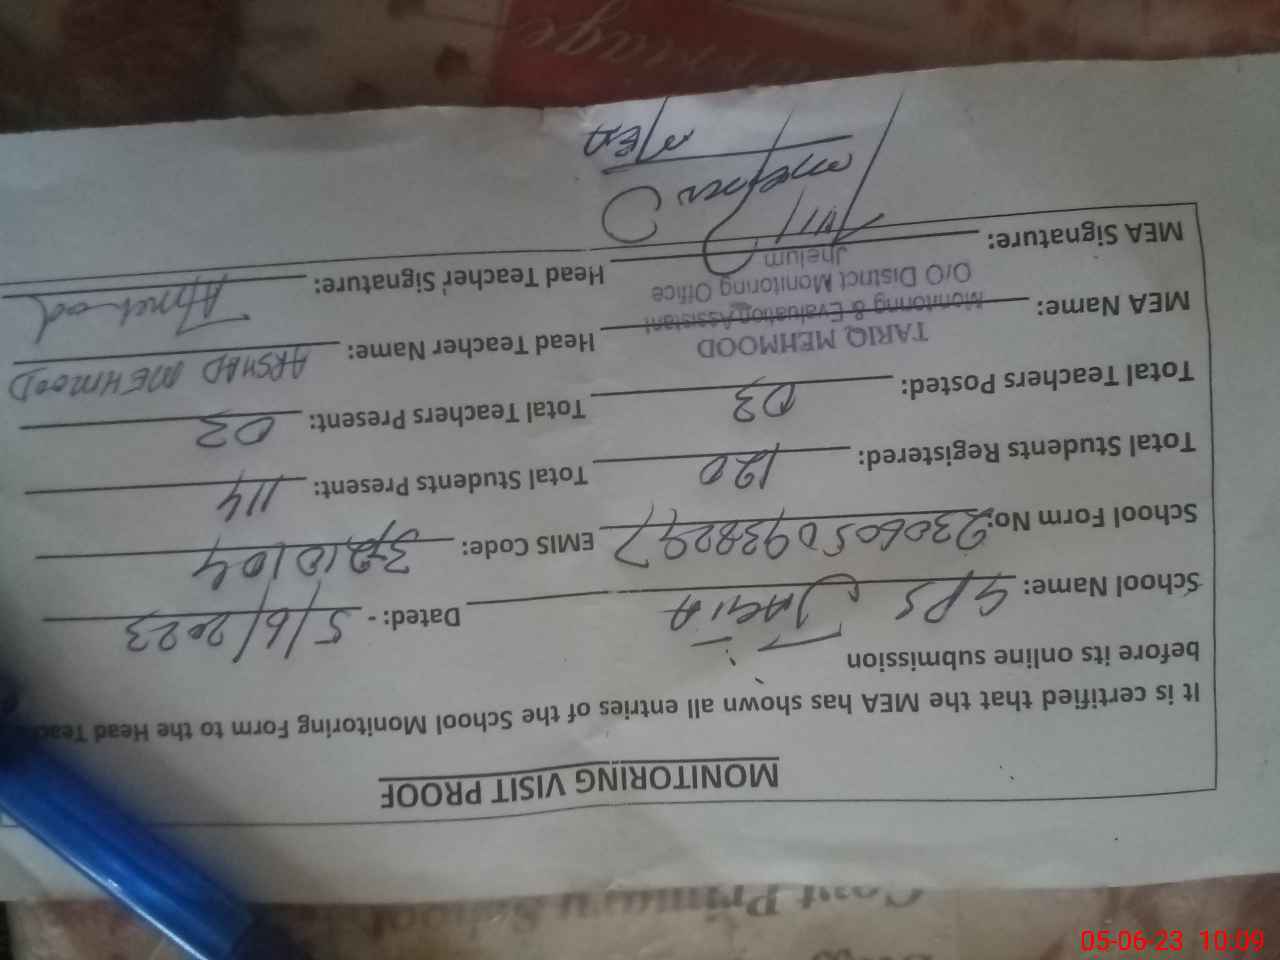 Govt Primary School
MONITORING VISIT PROOF
It is certified that the MEA has shown all entries of the School Monitoring Form to the Head Teac
before its online submission
School Name: GPS JAGIA Dated: - 5/6/2023
School Form No: 230605093829 EMIS Code: 37210104
Total Students Registered: 120 Total Students Present: 114
Total Teachers Posted: 03 Total Teachers Present: 03
MEA Name: TARIQ MEHMOOD Head Teacher Name: ARSHAD MEHMOOD
Monitoring & Evaluation Assistant
O/O District Monitoring Office
Jhelum
MEA Signature: Head Teacher Signature: AMehmood
MEA
05-06-23 10:09